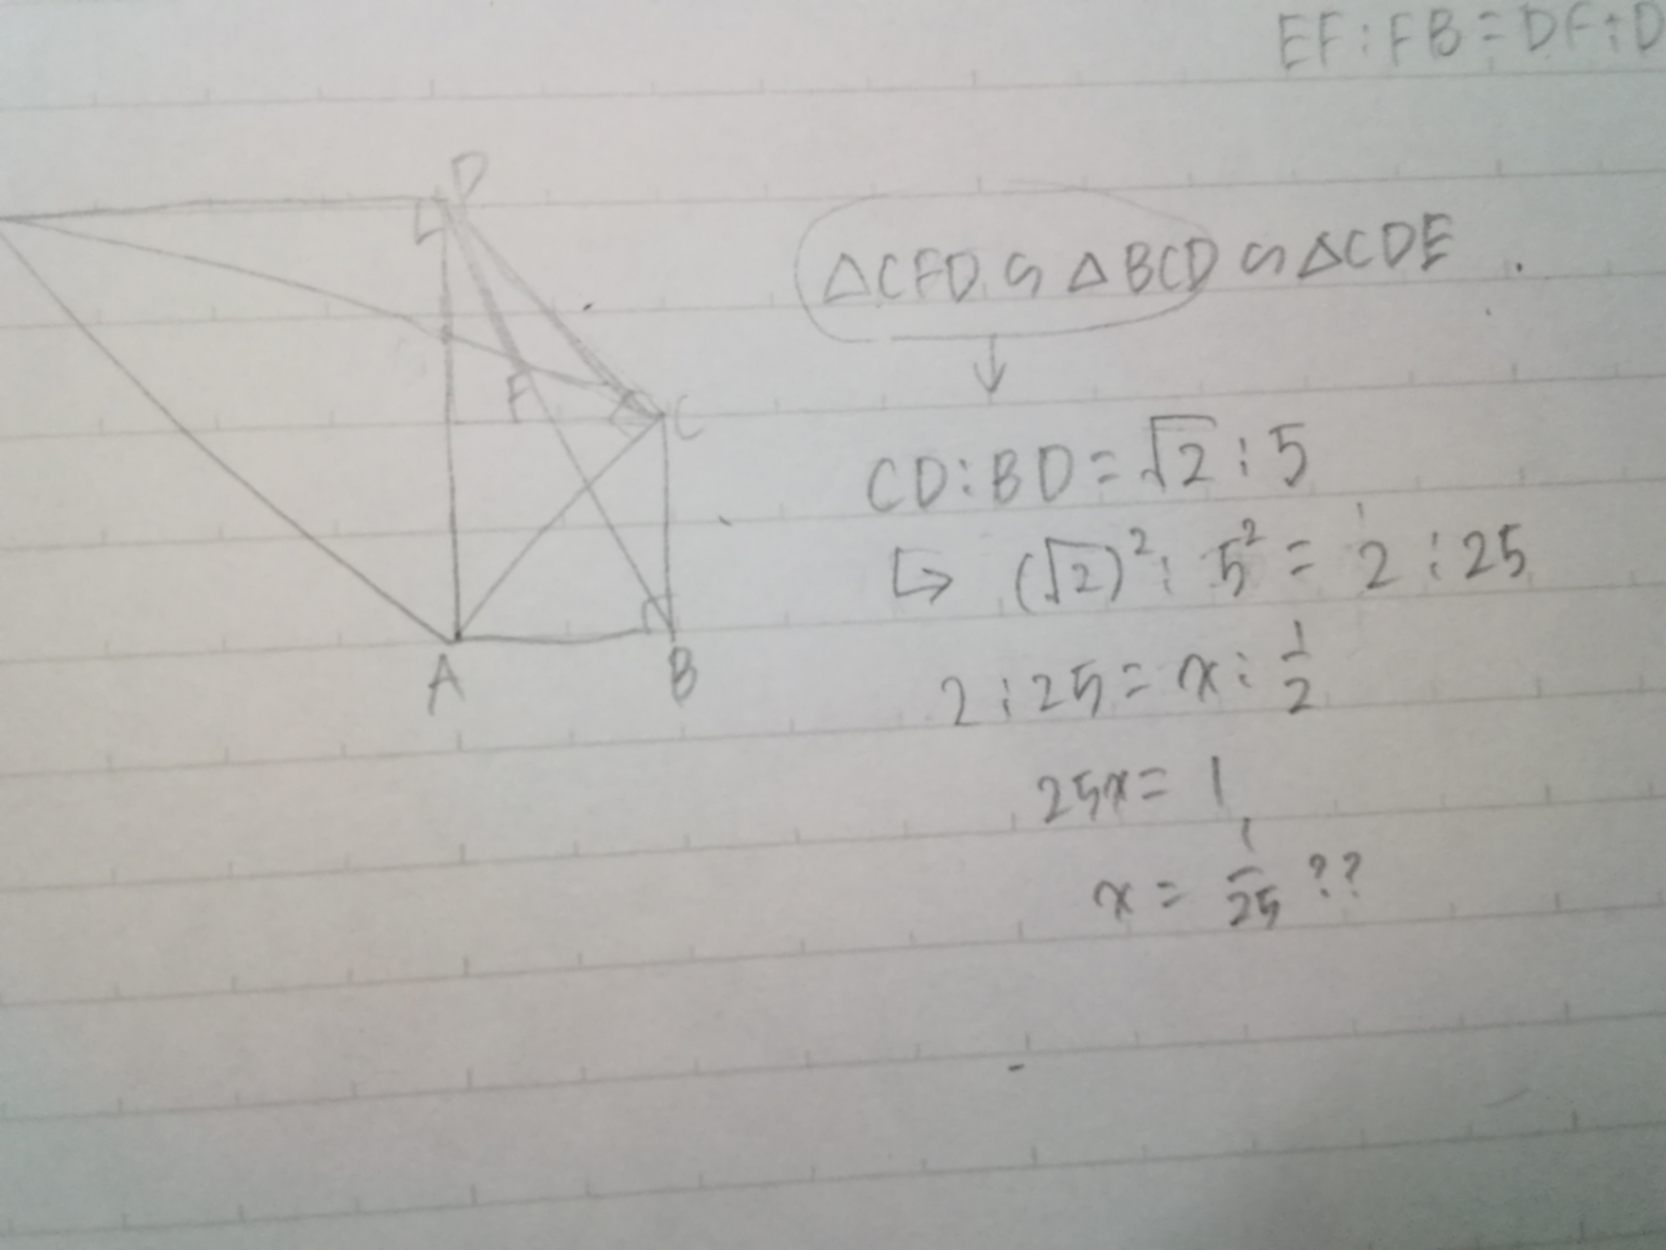 EF:FB=DF:D
D
△CFD ∽ △BCD ∽ △CDE.
F
C
CD:BD=√2:5
↳ (√2)²:5²=2:25
A
B
2:25=x:1/2
25x=1
x=1/25??